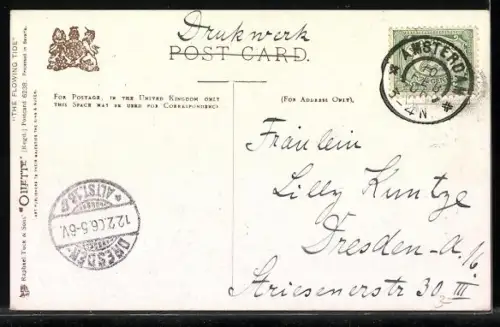 Drukwerk
POST CARD.
FOR POSTAGE, IN THE UNITED KINGDOM ONLY
THIS SPACE MAY BE USED FOR CORRESPONDENCE
(FOR ADDRESS ONLY).
AMSTERDAM
3-4N
Fräulein
Lilly Kuntze
Dresden-A. 16
Striesenerstr 30 III
DRESDEN-
ALTST.
12.2.06.5-6V.
"THE FLOWING TIDE"
Raphael Tuck & Sons' "OILETTE" (Regd.) Postcard 6239. Processed in Bavaria.
ART PUBLISHERS TO THEIR MAJESTIES THE KING & QUEEN.